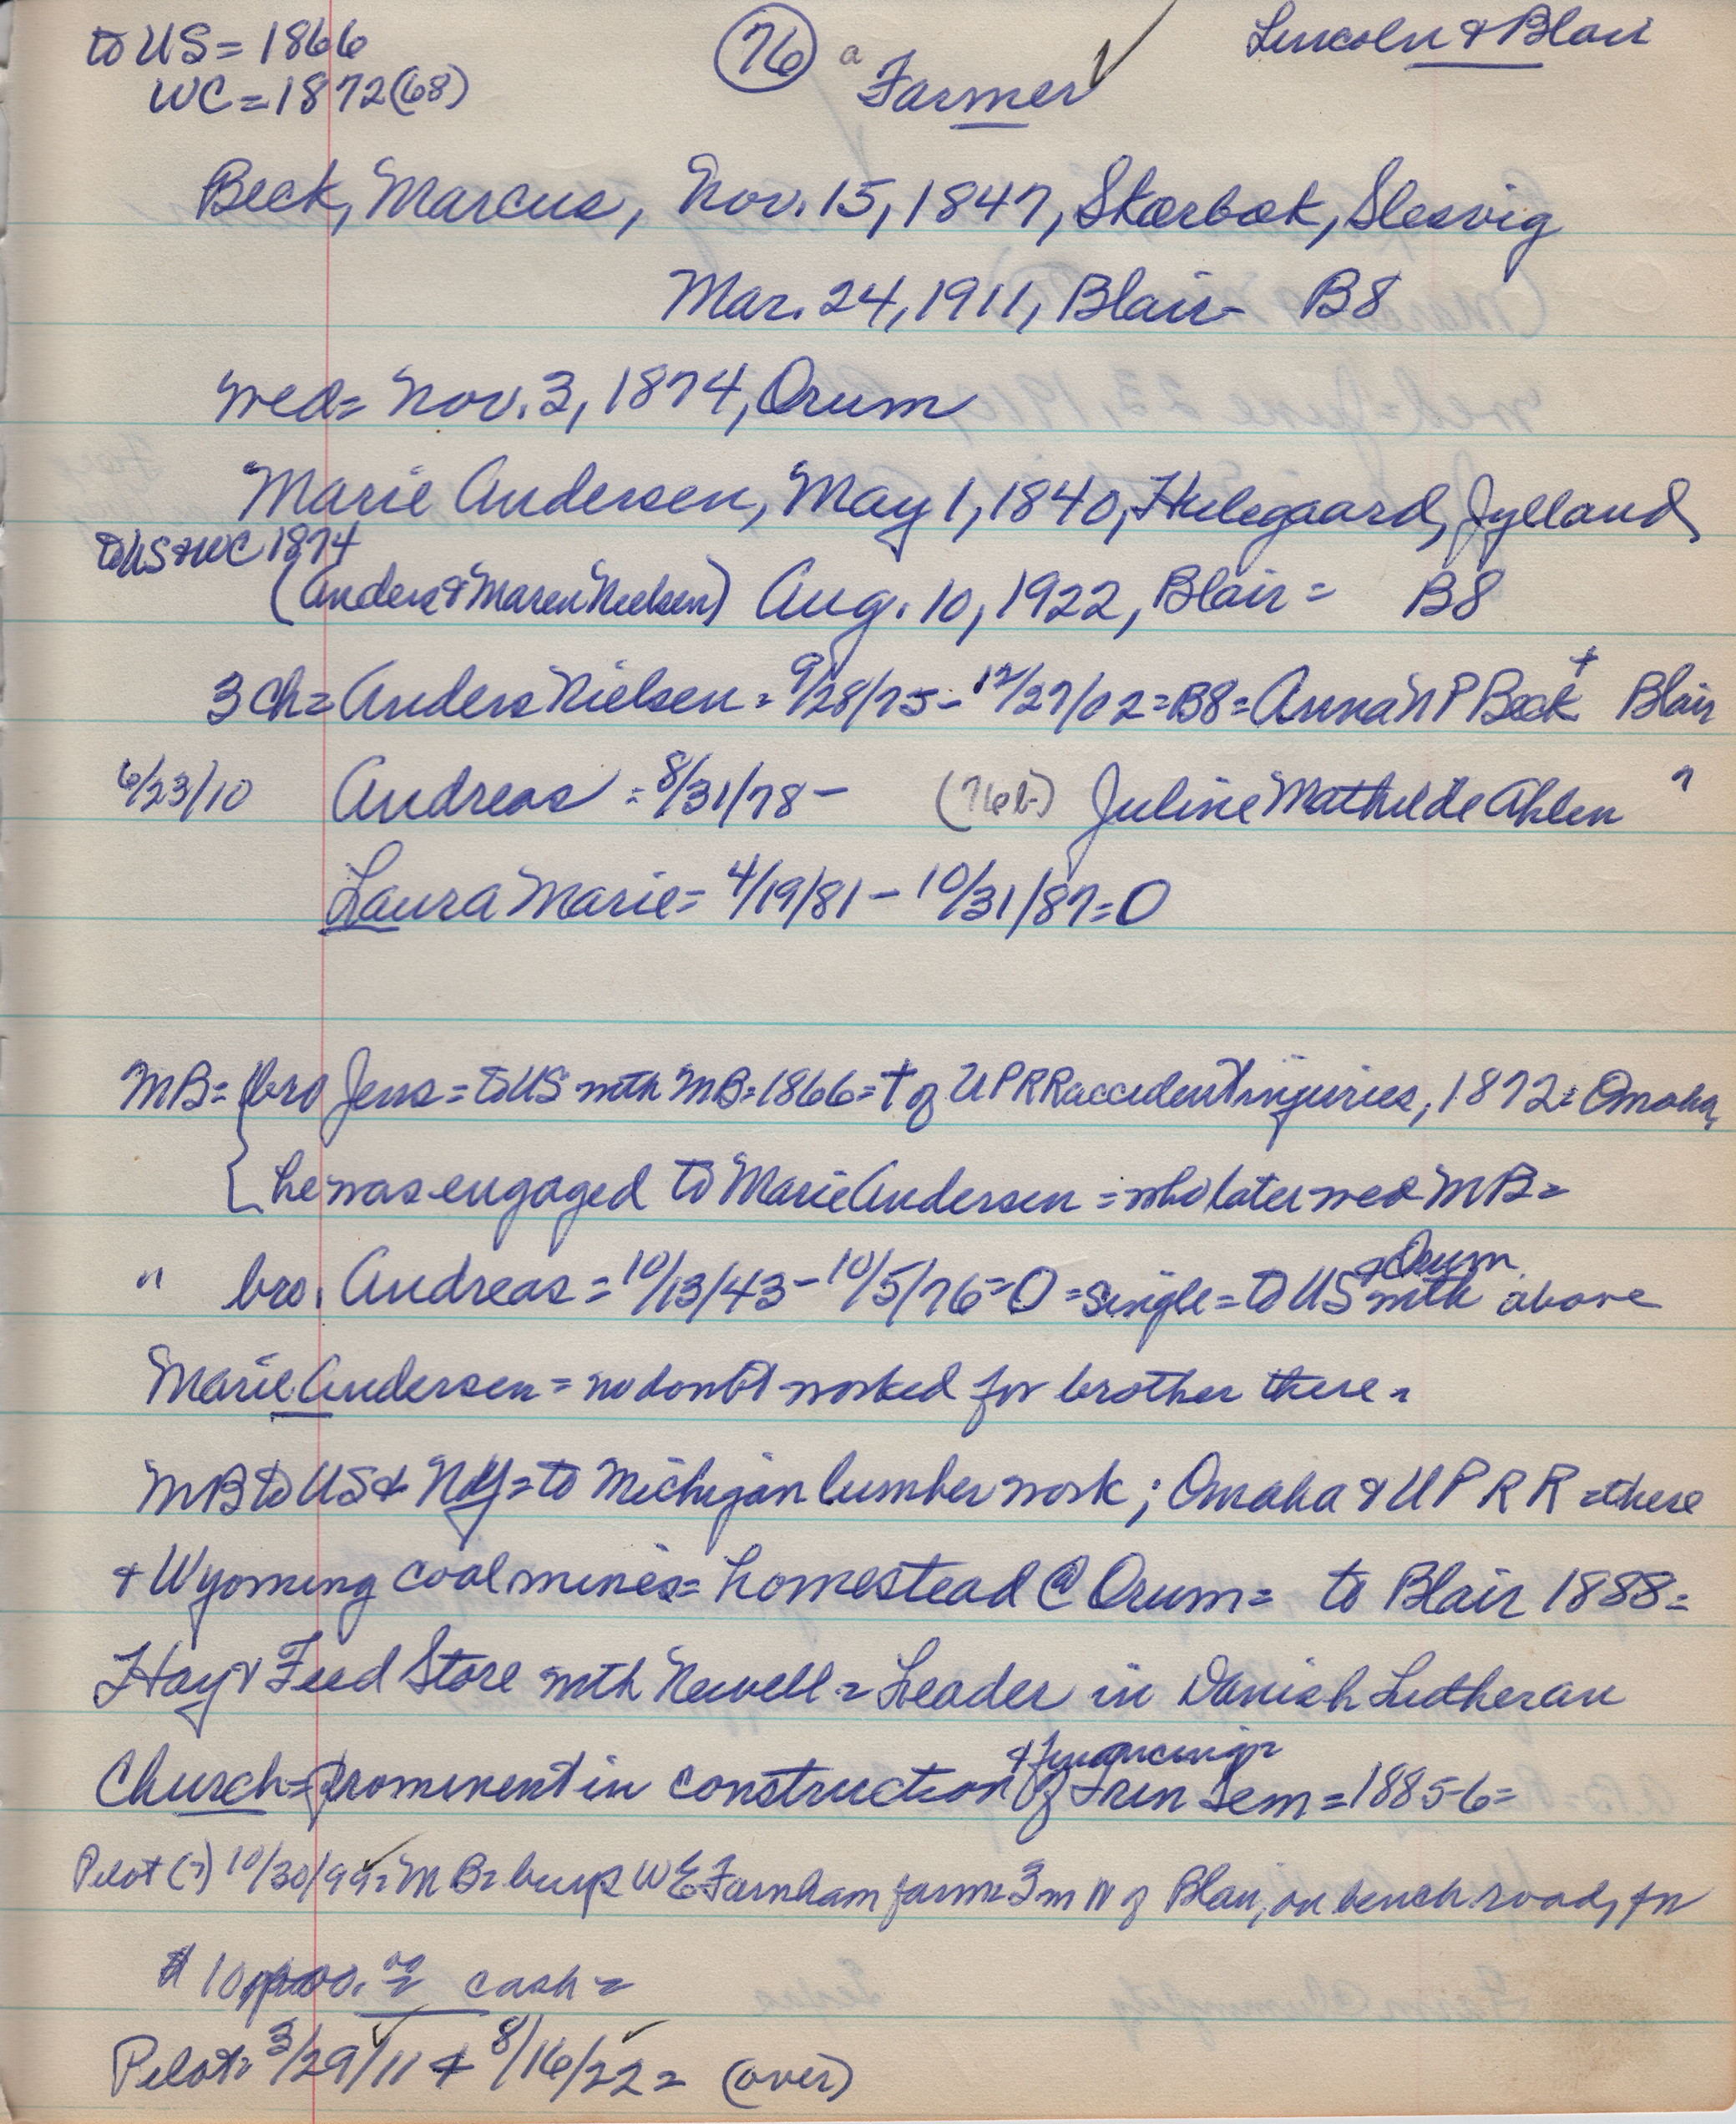 to US = 1866 (76) a Farmer Lincoln & Blair
WC = 1872 (68)
Beck, Marcus, Nov. 15, 1847, Skærbæk, Slesvig
Mar. 24, 1911, Blair - B8
wed = Nov. 3, 1874, Orum
Marie Andersen, May 1, 1840, Hulegaard, Jylland,
to US & WC 1874
(Anders & Maren Nielsen) Aug. 10, 1922, Blair = B8
3 ch = Anders Nielsen = 9/28/75 - 12/27/02 = B8 = Anna N P Beck + Blair
6/23/10 Andreas = 8/31/78 - (76b) Juline Mathilde Ahlen "
Laura Marie = 4/19/81 - 10/31/87 = O
MB = { bro Jens = to US with MB = 1866 = † of UPRR accident injuries, 1872 = Omaha,
{ he was engaged to Marie Andersen = who later wed MB =
" bro. Andreas = 10/13/43 - 10/5/76 = O = single = to US & Orum with above
Marie Andersen = no doubt worked for brother there =
MB to US & NY = to Michigan lumber work; Omaha & UPRR = there
& Wyoming coal mines = homestead @ Orum = to Blair 1888 =
Hay & Feed Store with Newell = Leader in Danish Lutheran
Church = prominent in construction & financing of Trin Sem = 1885-6 =
Pilot (?) 10/30/99 = MB = buys W E Farnham farm = 3 m N of Blair, on bench road, for
cash =
Pilot = 3/29/11 & 8/16/22 = (over)